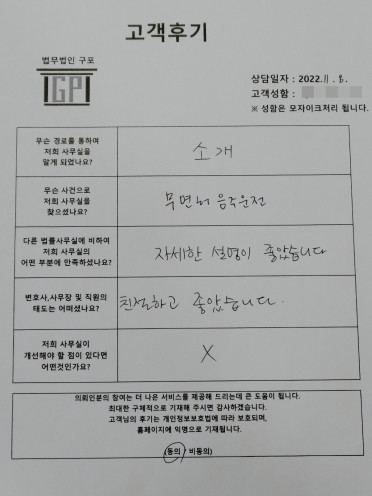 고객후기
법무법인 구포
GP
상담일자 : 2022. 11. 8.
고객성함 :
※ 성함은 모자이크처리 됩니다.
무슨 경로를 통하여
저희 사무실을
알게 되었나요?
소개
무슨 사건으로
저희 사무실을
찾으셨나요?
무면허 음주운전
다른 법률사무실에 비하여
저희 사무실의
어떤 부분에 만족하셨나요?
자세한 설명이 좋았습니다
변호사,사무장 및 직원의
태도는 어떠셨나요?
친절하고 좋았습니다.
저희 사무실이
개선해야 할 점이 있다면
어떤것인가요?
X
의뢰인분의 참여는 더 나은 서비스를 제공해 드리는데 큰 도움이 됩니다.
최대한 구체적으로 기재해 주시면 감사하겠습니다.
고객님의 후기는 개인정보보호법에 따라 보호되며,
홈페이지에 익명으로 기재됩니다.
(동의 / 비동의)